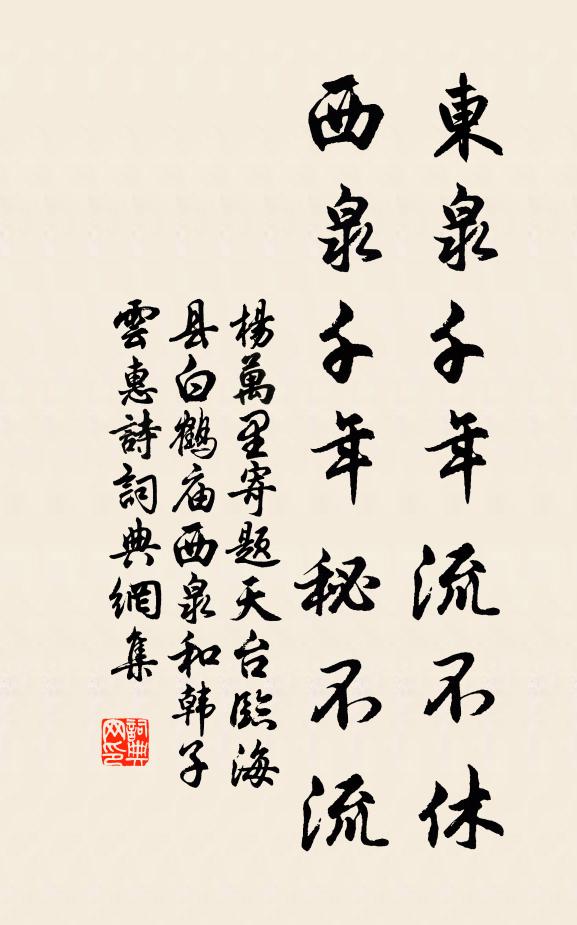 東泉千年流不休
西泉千年秘不流
楊萬里寄题天台臨海
县白鶴庙西泉和韩子
雲惠詩詞典網集
詞典
网印